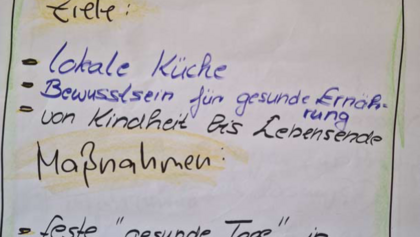 Ziele:
- lokale Küche
- Bewusstsein für gesunde Ernäh-
rung
- von Kindheit bis Lebensende
Maßnahmen:
- feste "gesunde Tage" in